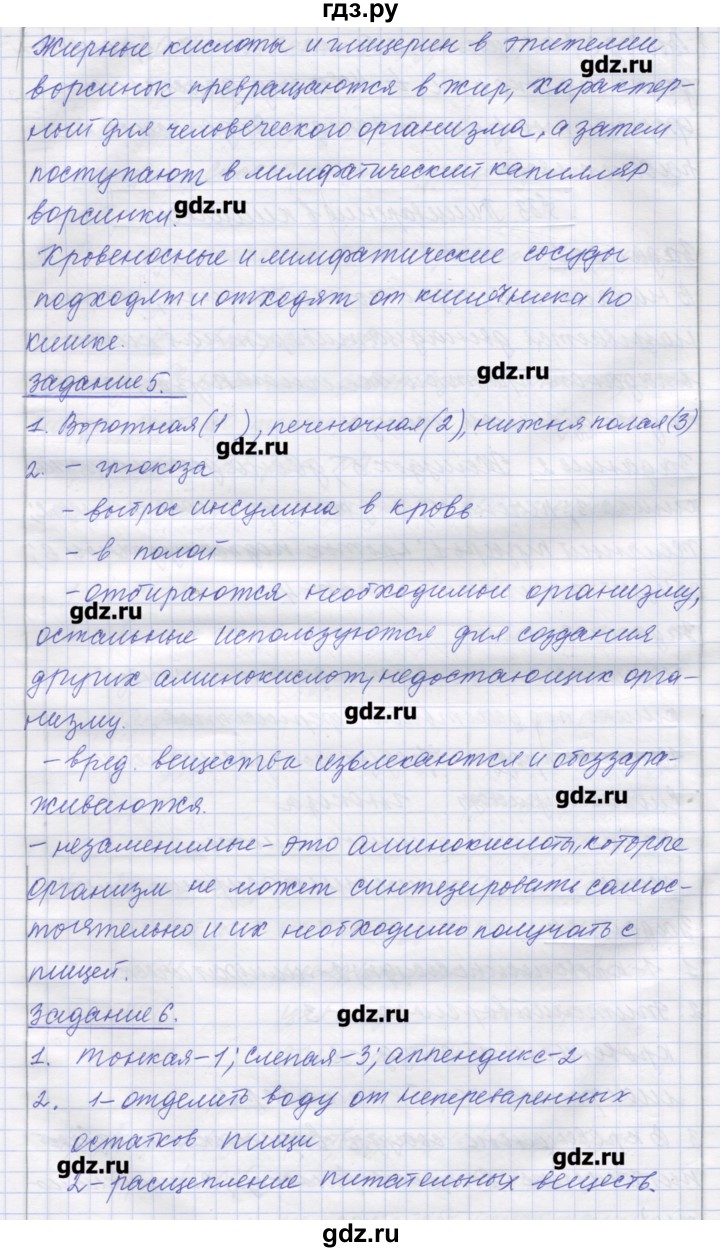 гдз.ру
Жирные кислоты и глицерин в эпителии
gdz.ru
ворсинок превращаются в жир, характер-
ный для человеческого организма, а затем
поступают в лимфатический капилляр
ворсинки.
gdz.ru
Кровеносные и лимфатические сосуды
подходят и отходят от кишечника по
кишке.
gdz.ru
Задание 5.
1. Воротная(1 ), печеночная(2), нижня полая(3)
gdz.ru
2. - глюкоза
- выброс инсулина в кровь
- в полой
- отбираются необходимые организму,
gdz.ru
остальные используются для создания
других аминокислот, недостающих орга-
gdz.ru
низму.
- вред. вещества извлекаются и обеззара-
gdz.ru
живаются.
- незаменимые - это аминокислоты, которые
организм не может синтезировать самос-
тоятельно и их необходимо получать с
пищей.
gdz.ru
Задание 6.
1. тонкая-1; слепая-3; аппендикс-2
2. 1- отделить воду от непереваренных
остатков пищи
gdz.ru
gdz.ru
2- расщепление питательных веществ.
gdz.ru